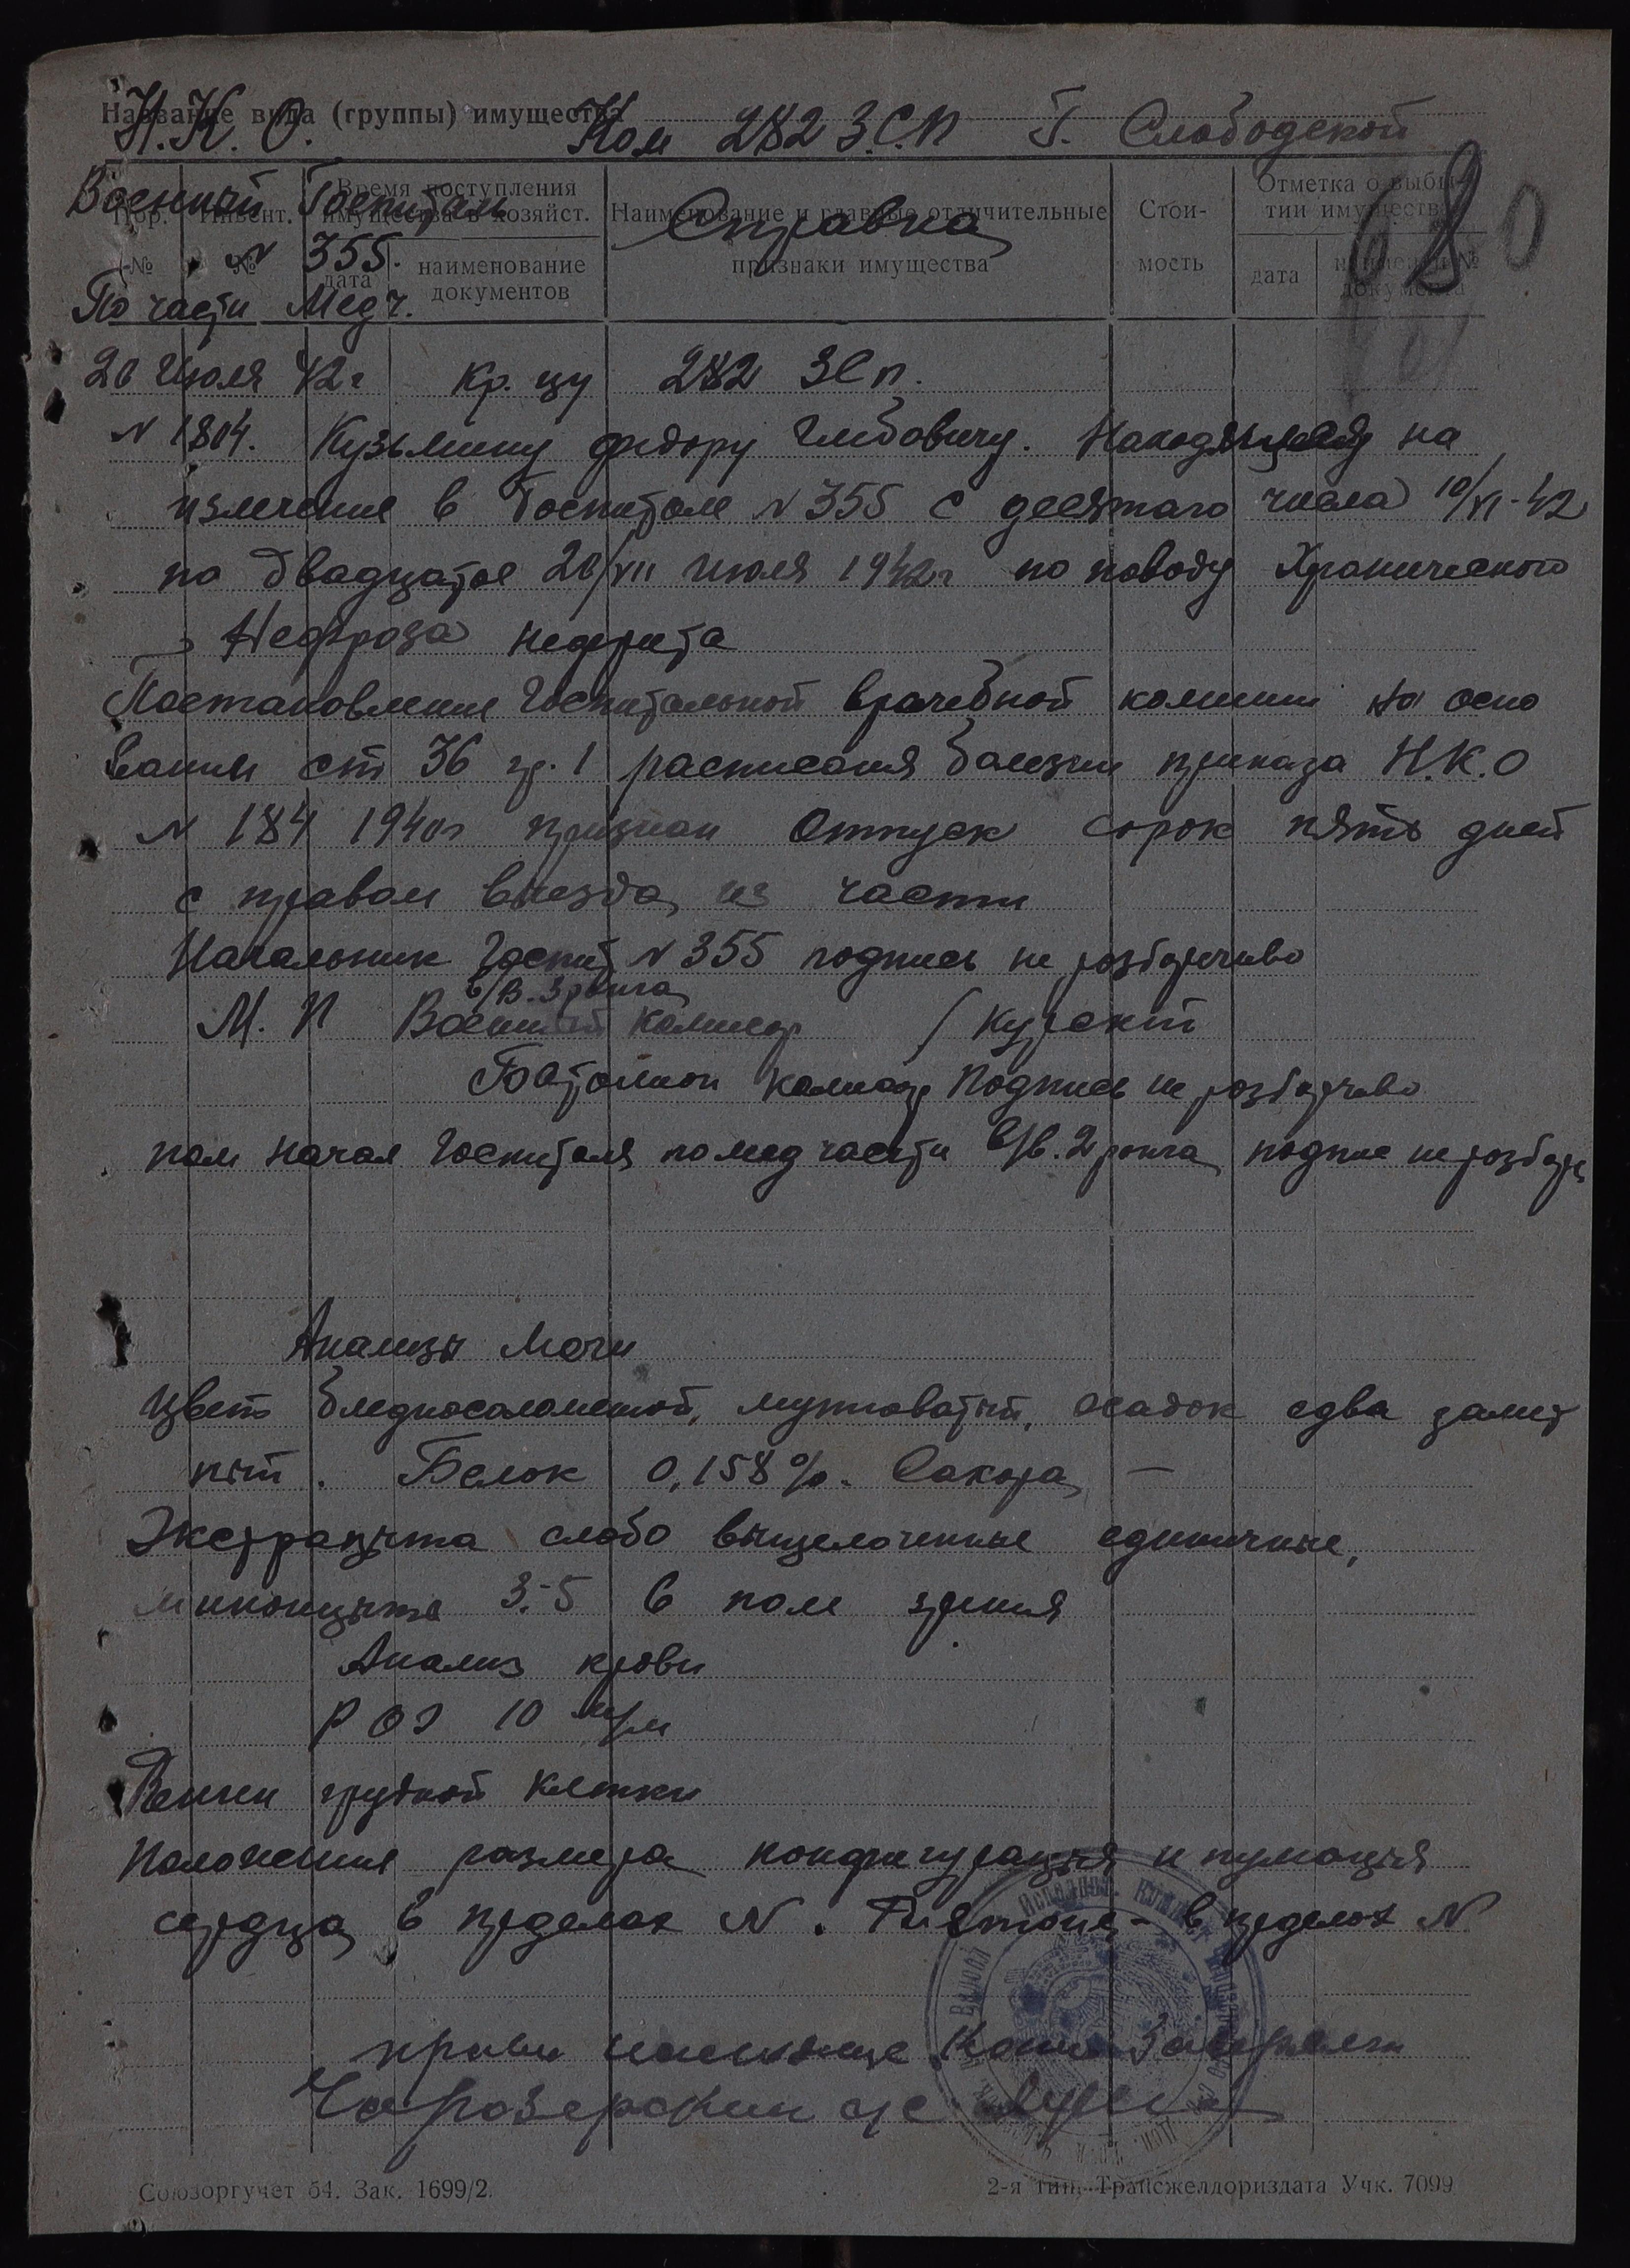 Название вида (группы) имущества
Н.К.О. Ком 282 З.С.П Г. Слободской
Военный Госпиталь Справка
Время поступления имущества в хозяйст.
Пор. № Инвент. № дата наименование документов
Наименование и главные отличительные признаки имущества
Стои-мость
Отметка о выбы-тии имущества
дата
№ 355.
80
По части Медч.
20 Июля 42 г Кр. цу 282 ЗСп.
N 1804. Кузьмину Федору Глибовичу. на
излечение в Госпитале N 355 с десятаго числа 10/VI-42
по двадцатое 20/VII Июля 1942 г по поводу Хронического
Нефроза нефрита
Постановление Госпитальной врачебной комиссии на осно
вании ст 36 гр. 1 расписания болезни приказа Н.К.О
N 184 1940 г признан Отпуск сорок пять дней
с правом выезда из части
Начальник Госпит N 355 подпись не розборчиво
в/в. 3 ранга
М. П Военный комисар / Курский
Батальон комисар Подпись не розборчиво
пом начал Госпиталя по мед части в/в. 2 ранга подпис не розборч
Анализы Мочи
Цвет бледносоломеной, мутноватый, осадок едва замет
ный. Белок 0,158%. Сахора —
слабо выщелоченные единичные,
3-5 в поле зрения
Анализ крови
РОЭ 10 м/м
грудной клетки
Положение размера конфигурация и пулюация
сердца в пределах N. - в пределах N
Союзоргучет 54. Зак. 1699/2.
2-я тип. Трансжелдориздата Учк. 7099